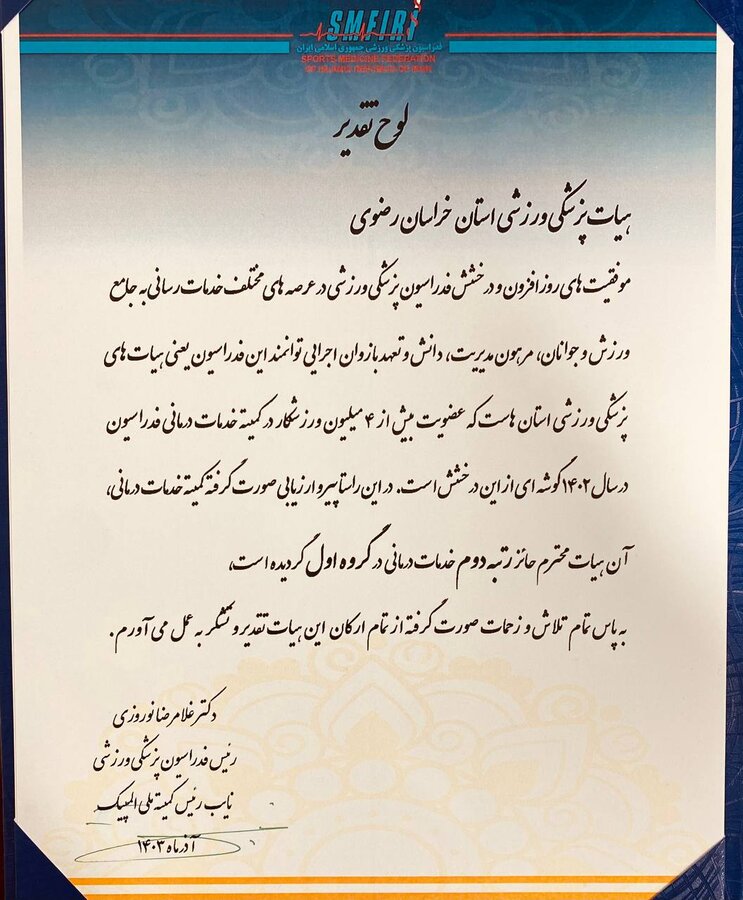 SMFIRI
فدراسیون پزشکی ورزشی جمهوری اسلامی ایران
SPORTS MEDICINE FEDERATION
OF ISLAMIC REPUBLIC OF IRAN
لوح تقدیر
هیات پزشکی ورزشی استان خراسان رضوی
موفقیت های روز افزون و درخشش فدراسیون پزشکی ورزشی در عرصه های مختلف خدمات رسانی به جامع
ورزش و جوانان، مرهون مدیریت، دانش و تعهد بازوان اجرایی توانمند این فدراسیون یعنی هیات های
پزشکی ورزشی استان هاست که عضویت بیش از ۴ میلیون ورزشکار در کمیته خدمات درمانی فدراسیون
در سال ۱۴۰۲ گوشه ای از این درخشش است. در این راستا پیرو ارزیابی صورت گرفته کمیته خدمات درمانی،
آن هیات محترم حائز رتبه دوم خدمات درمانی در گروه اول گردیده است،
به پاس تمام تلاش و زحمات صورت گرفته از تمام ارکان این هیات تقدیر و تشکر به عمل می آورم.
دکتر غلامرضا نوروزی
رئیس فدراسیون پزشکی ورزشی
نایب رئیس کمیته ملی المپیک
آذر ماه ۱۴۰۳